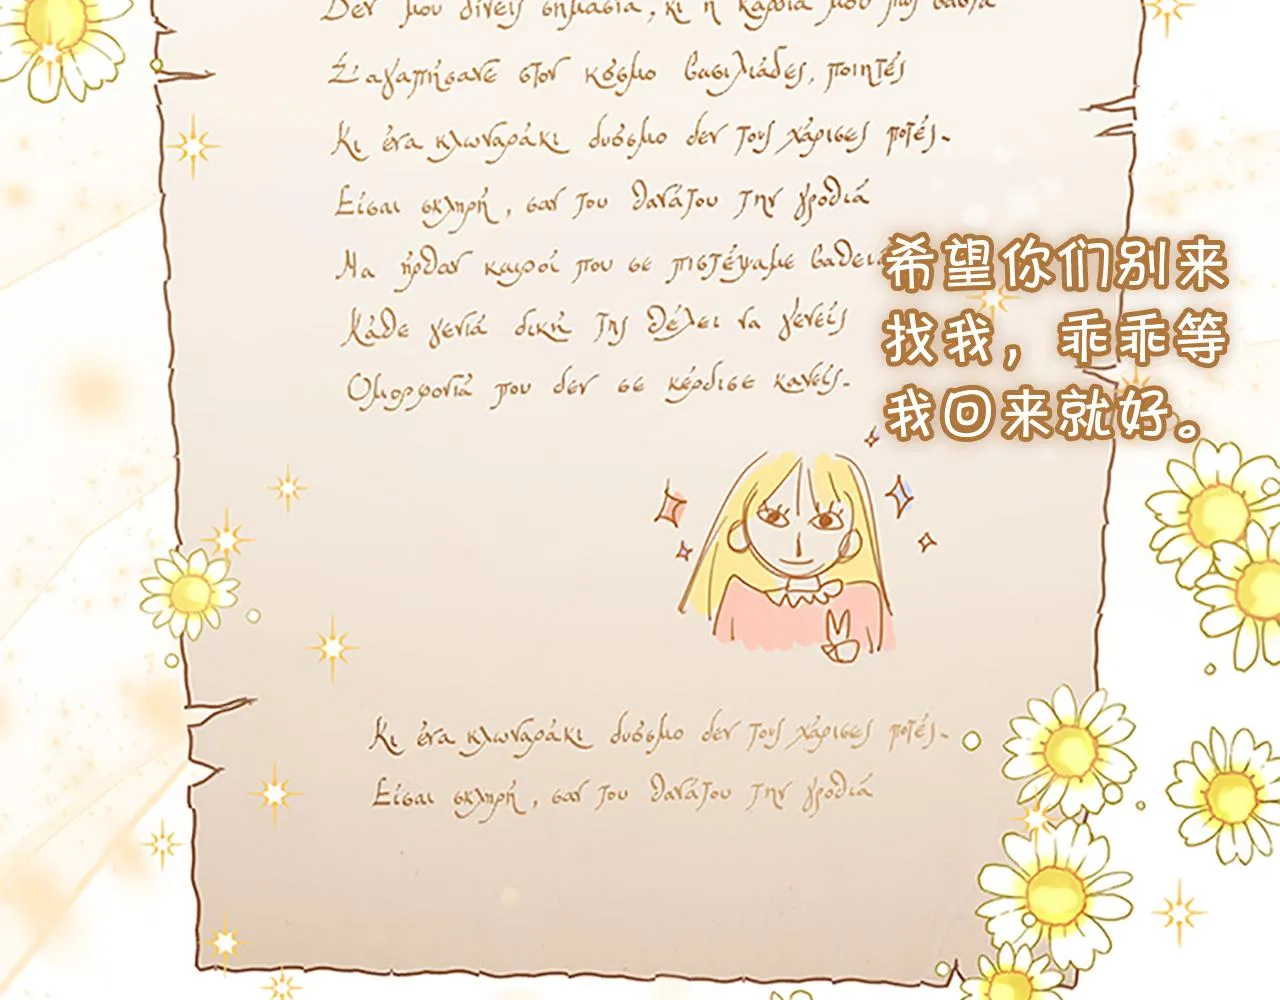 Δεν μου δίνεις σημασία, κι η καρδιά μου πώς βαστά
Σ' αγαπήσανε στον κόσμο βασιλιάδες, ποιητές
Κι ένα κλωναράκι δυόσμο δεν τους χάρισες ποτές.
Είσαι σκληρή, σαν του θανάτου την γροθιά
Μα ήρθαν καιροί που σε πιστέψαμε βαθειά
Κάθε γενιά δική της θέλει να γενείς
Ομορφονιά που δεν σε κέρδισε κανείς.
希望你们别来
找我，乖乖等
我回来就好。
Κι ένα κλωναράκι δυόσμο δεν τους χάρισες ποτές.
Είσαι σκληρή, σαν του θανάτου την γροθιά